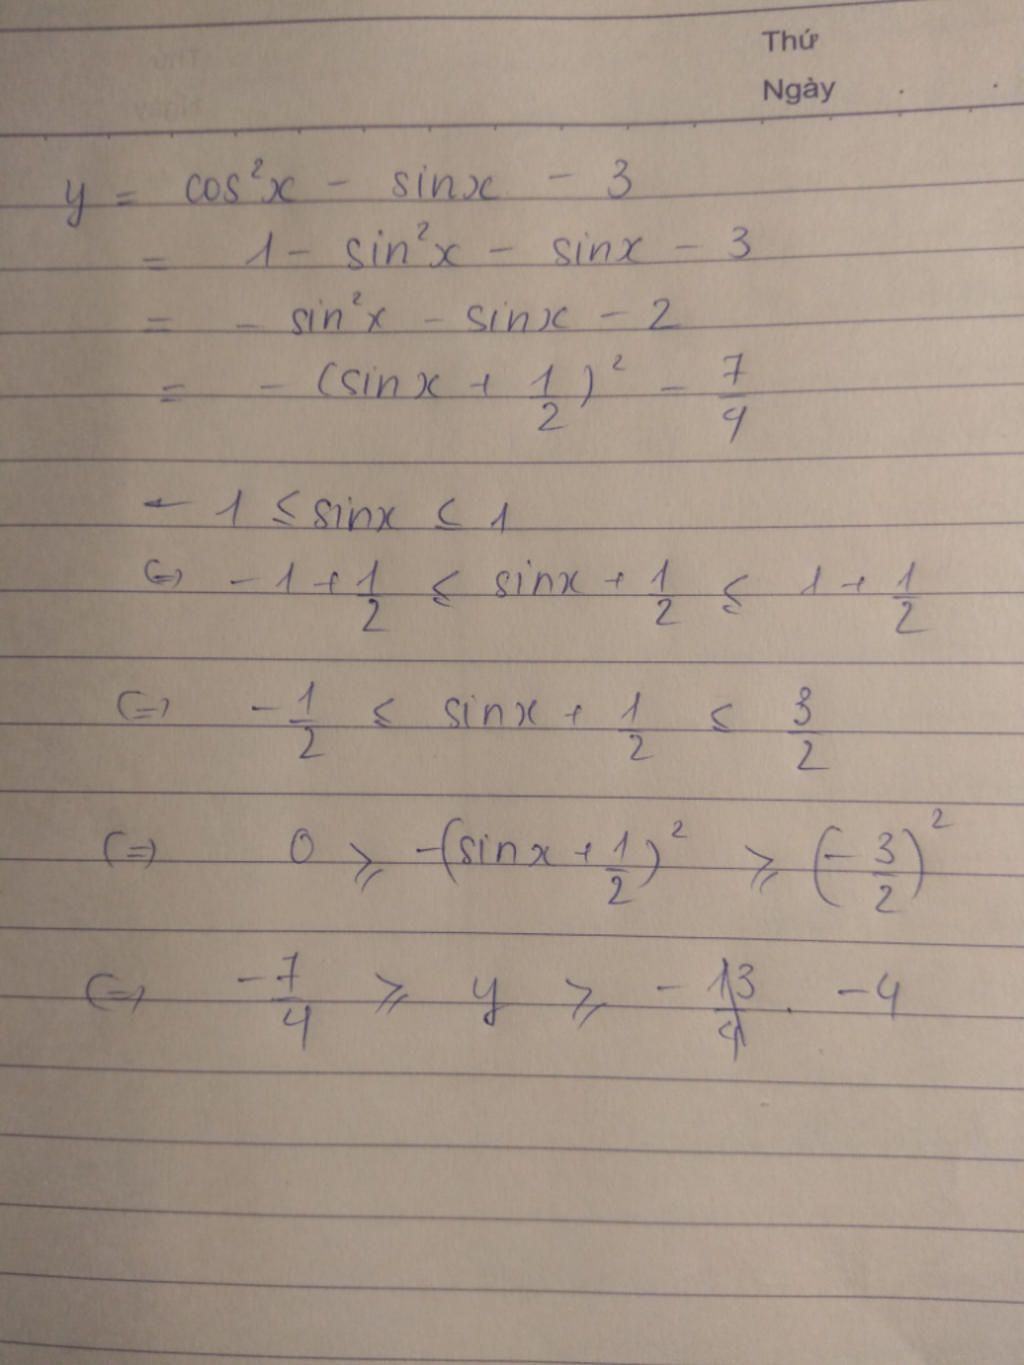 Thứ
Ngày
y = cos²x - sinx - 3
= 1 - sin²x - sinx - 3
= - sin²x - sinx - 2
= - (sinx + 1/2)² - 7/4
- 1 ≤ sinx ≤ 1
(=) - 1 + 1/2 ≤ sinx + 1/2 ≤ 1 + 1/2
(=) - 1/2 ≤ sinx + 1/2 ≤ 3/2
(=) 0 ⩾ -(sinx + 1/2)² ⩾ (- 3/2)²
(=) - 7/4 ⩾ y ⩾ - 13/4 . - 4